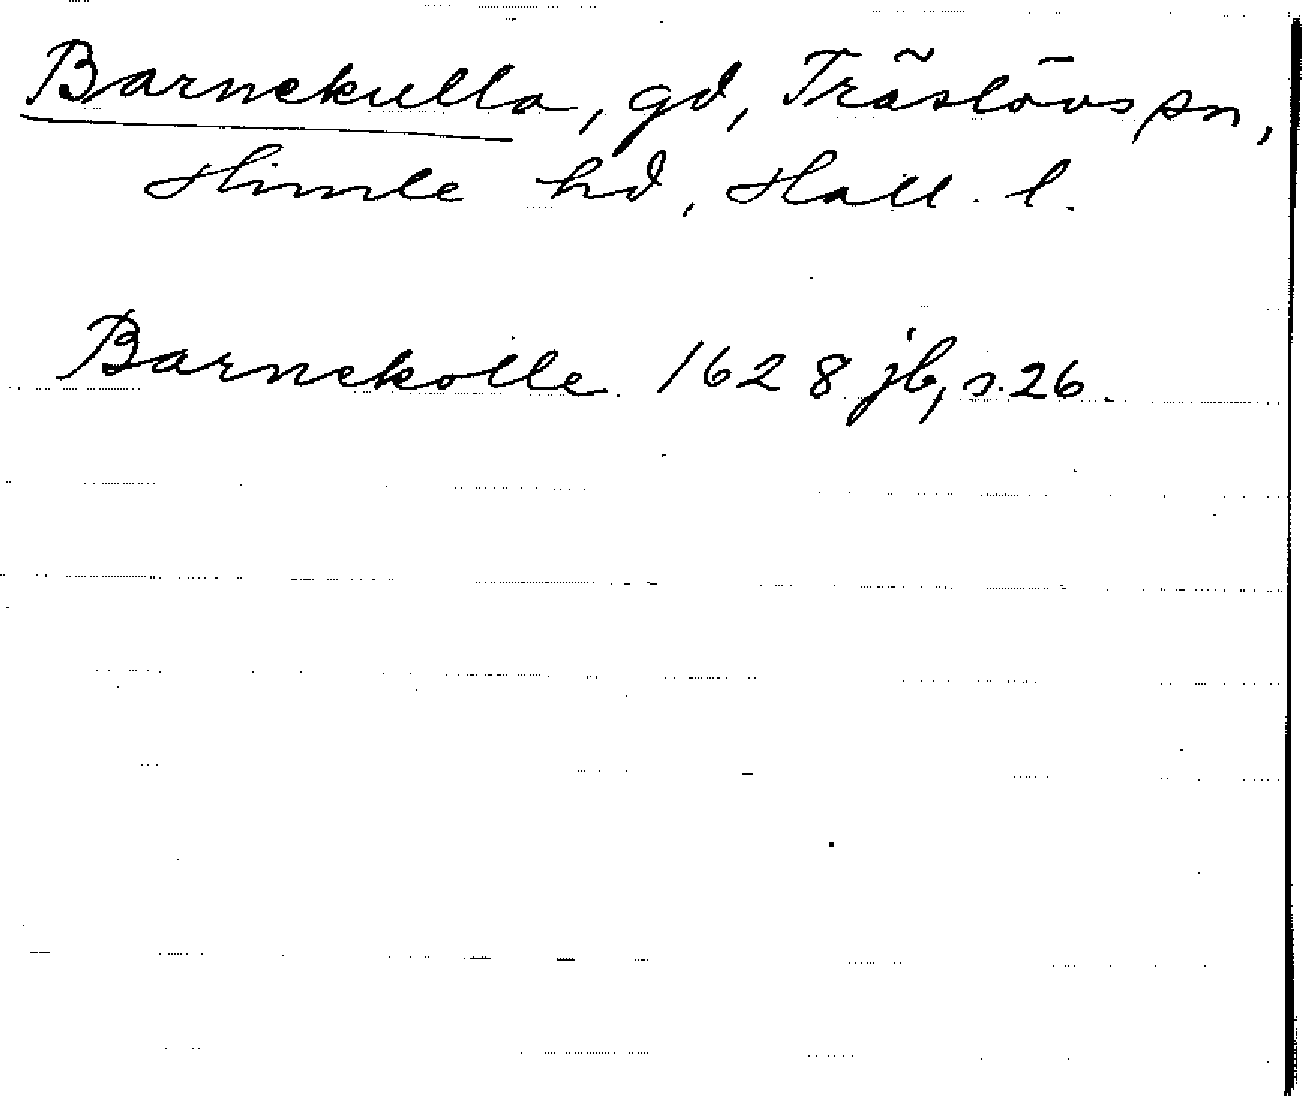 Barnekulla, gd, Träslövs sn,
Himle hd, Hall. l.
Barnekolle. 1628 jb, s. 26.